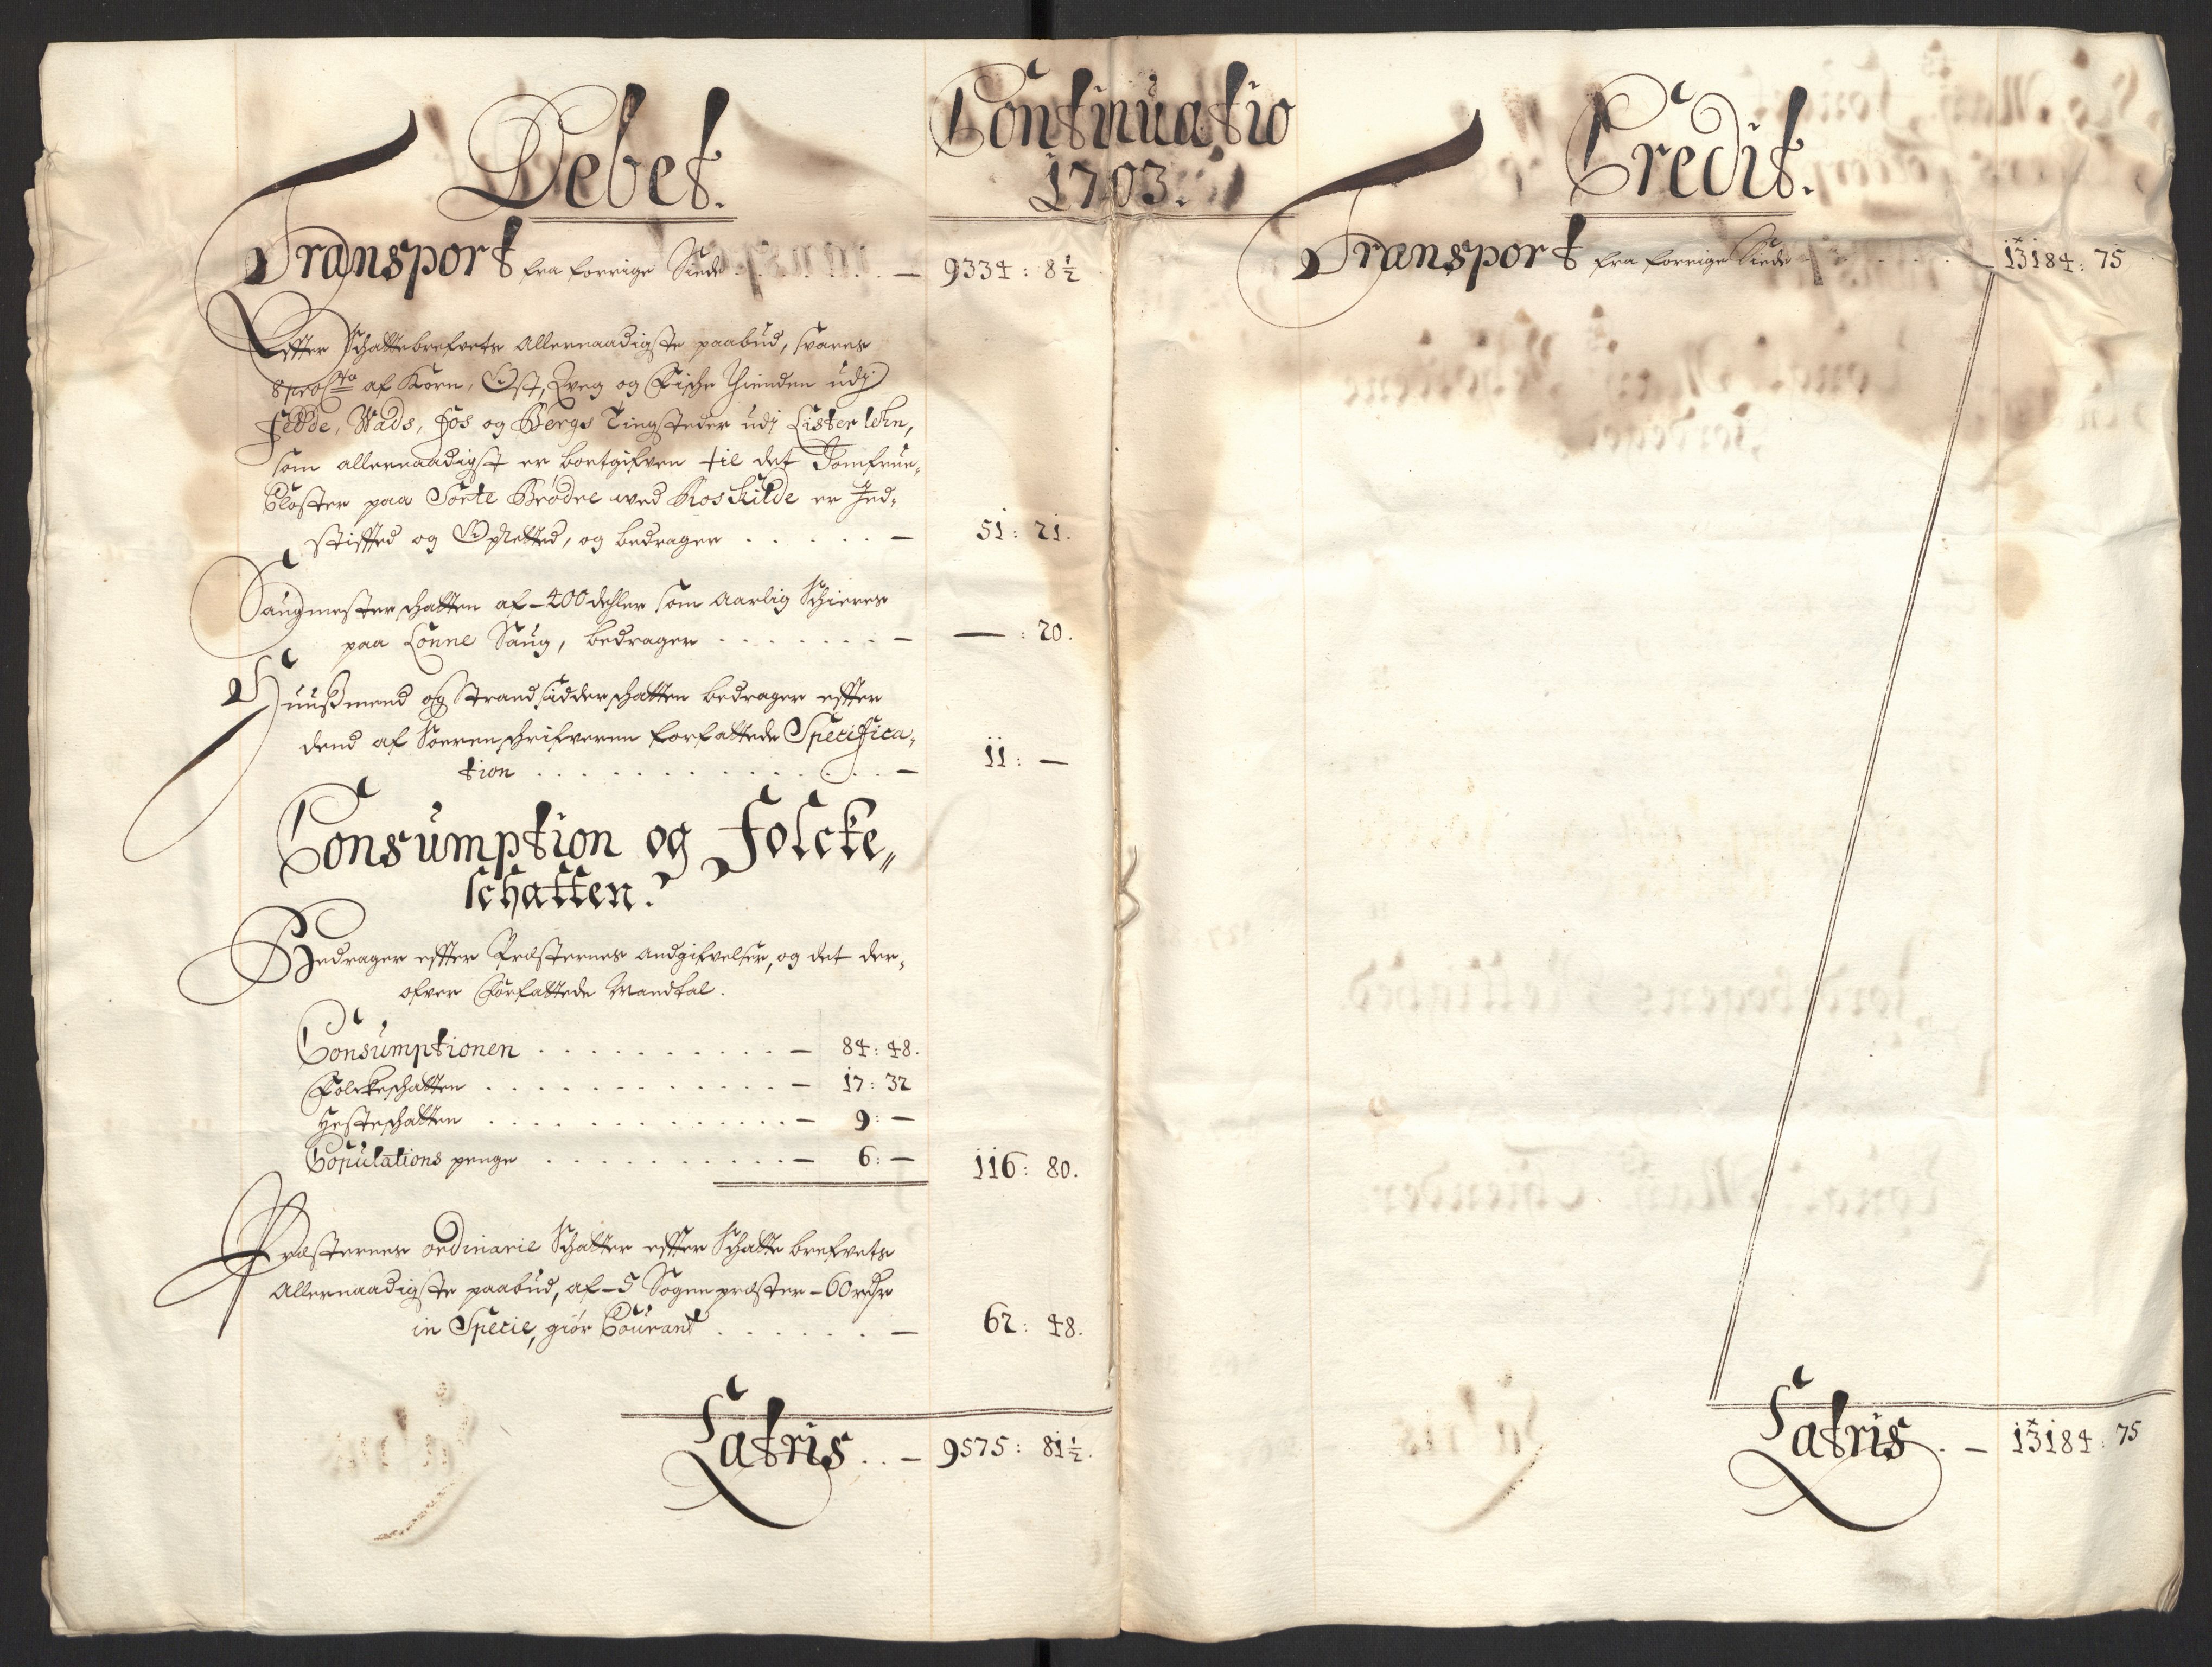 Continuatio
1703.
Debet.
Transport fra forrige Siede . . . . . . — 9334 : 8½
Effter Schattebrefvets Allernaadigste paabud, svares
8 pro Cto af Korn, Ost, Qveg og Fische Thienden udj
Fedde, Vads, Hos og Bergs Tingsteder udj Lister lehn,
som allernaadigst er bortgifven til det Jomfrue-
Closter paa Sorte Brødre wed Roskilde er Ind-
stiffted og Opretted, og bedrager . . . . . — 51 : 21.
Saugmester schatten af 400 dehler som Aarlig Schieres
paa Lonne Saug, bedrager . . . . . . . — — : 20.
Huusmend og Strandsidder schatten bedrager effter
dend af Sorenschrifveren forfattede Specifica-
tion . . . . . . . . . . . — 11 : —
Consumption og Folcke-
schatten.
Bedrager effter Præsternes Andgifvelser, og det der-
ofver Forfattede Mandtal.
Consumptionen . . . . . . . . . . — 84 : 48.
Folckeschatten . . . . . . . . . . . — 17 : 32
Hesteschatten . . . . . . . . . . . — 9 : —
Copulations penge . . . . . . . . . — 6 : — 116 : 80.
Præsternes ordinarie Schatter effter Schatte brefvets
Allernaadigste paabud, af 5 Sognepræster 60 rdr
in Specie, giør Courant . . . . . . — 62 : 48.
Latris . . — 9575 : 81½.
Credit.
Transport fra forrige Siede . . . . . — 13184 : 75
Latris . — 13184 : 75